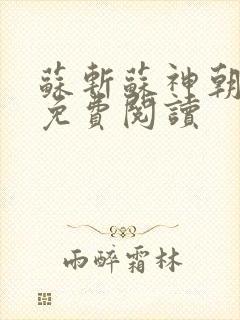 蘇斬蘇神朝
免費閱讀
雨醉霜林